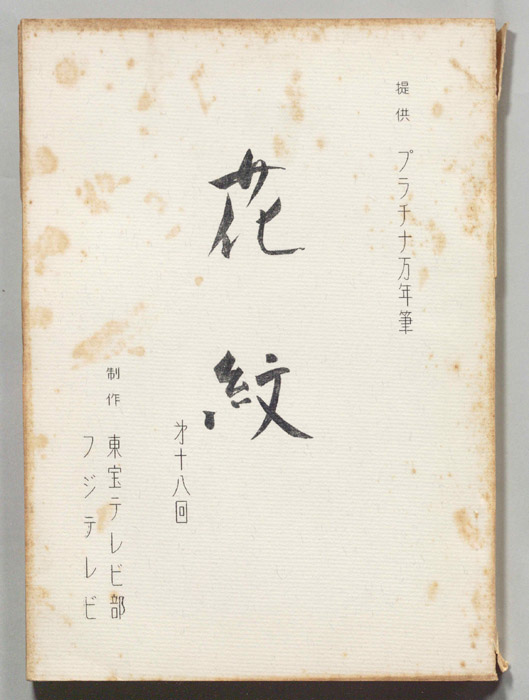 提供 プラチナ万年筆
花紋
第十八回
制作 東宝テレビ部
フジテレビ